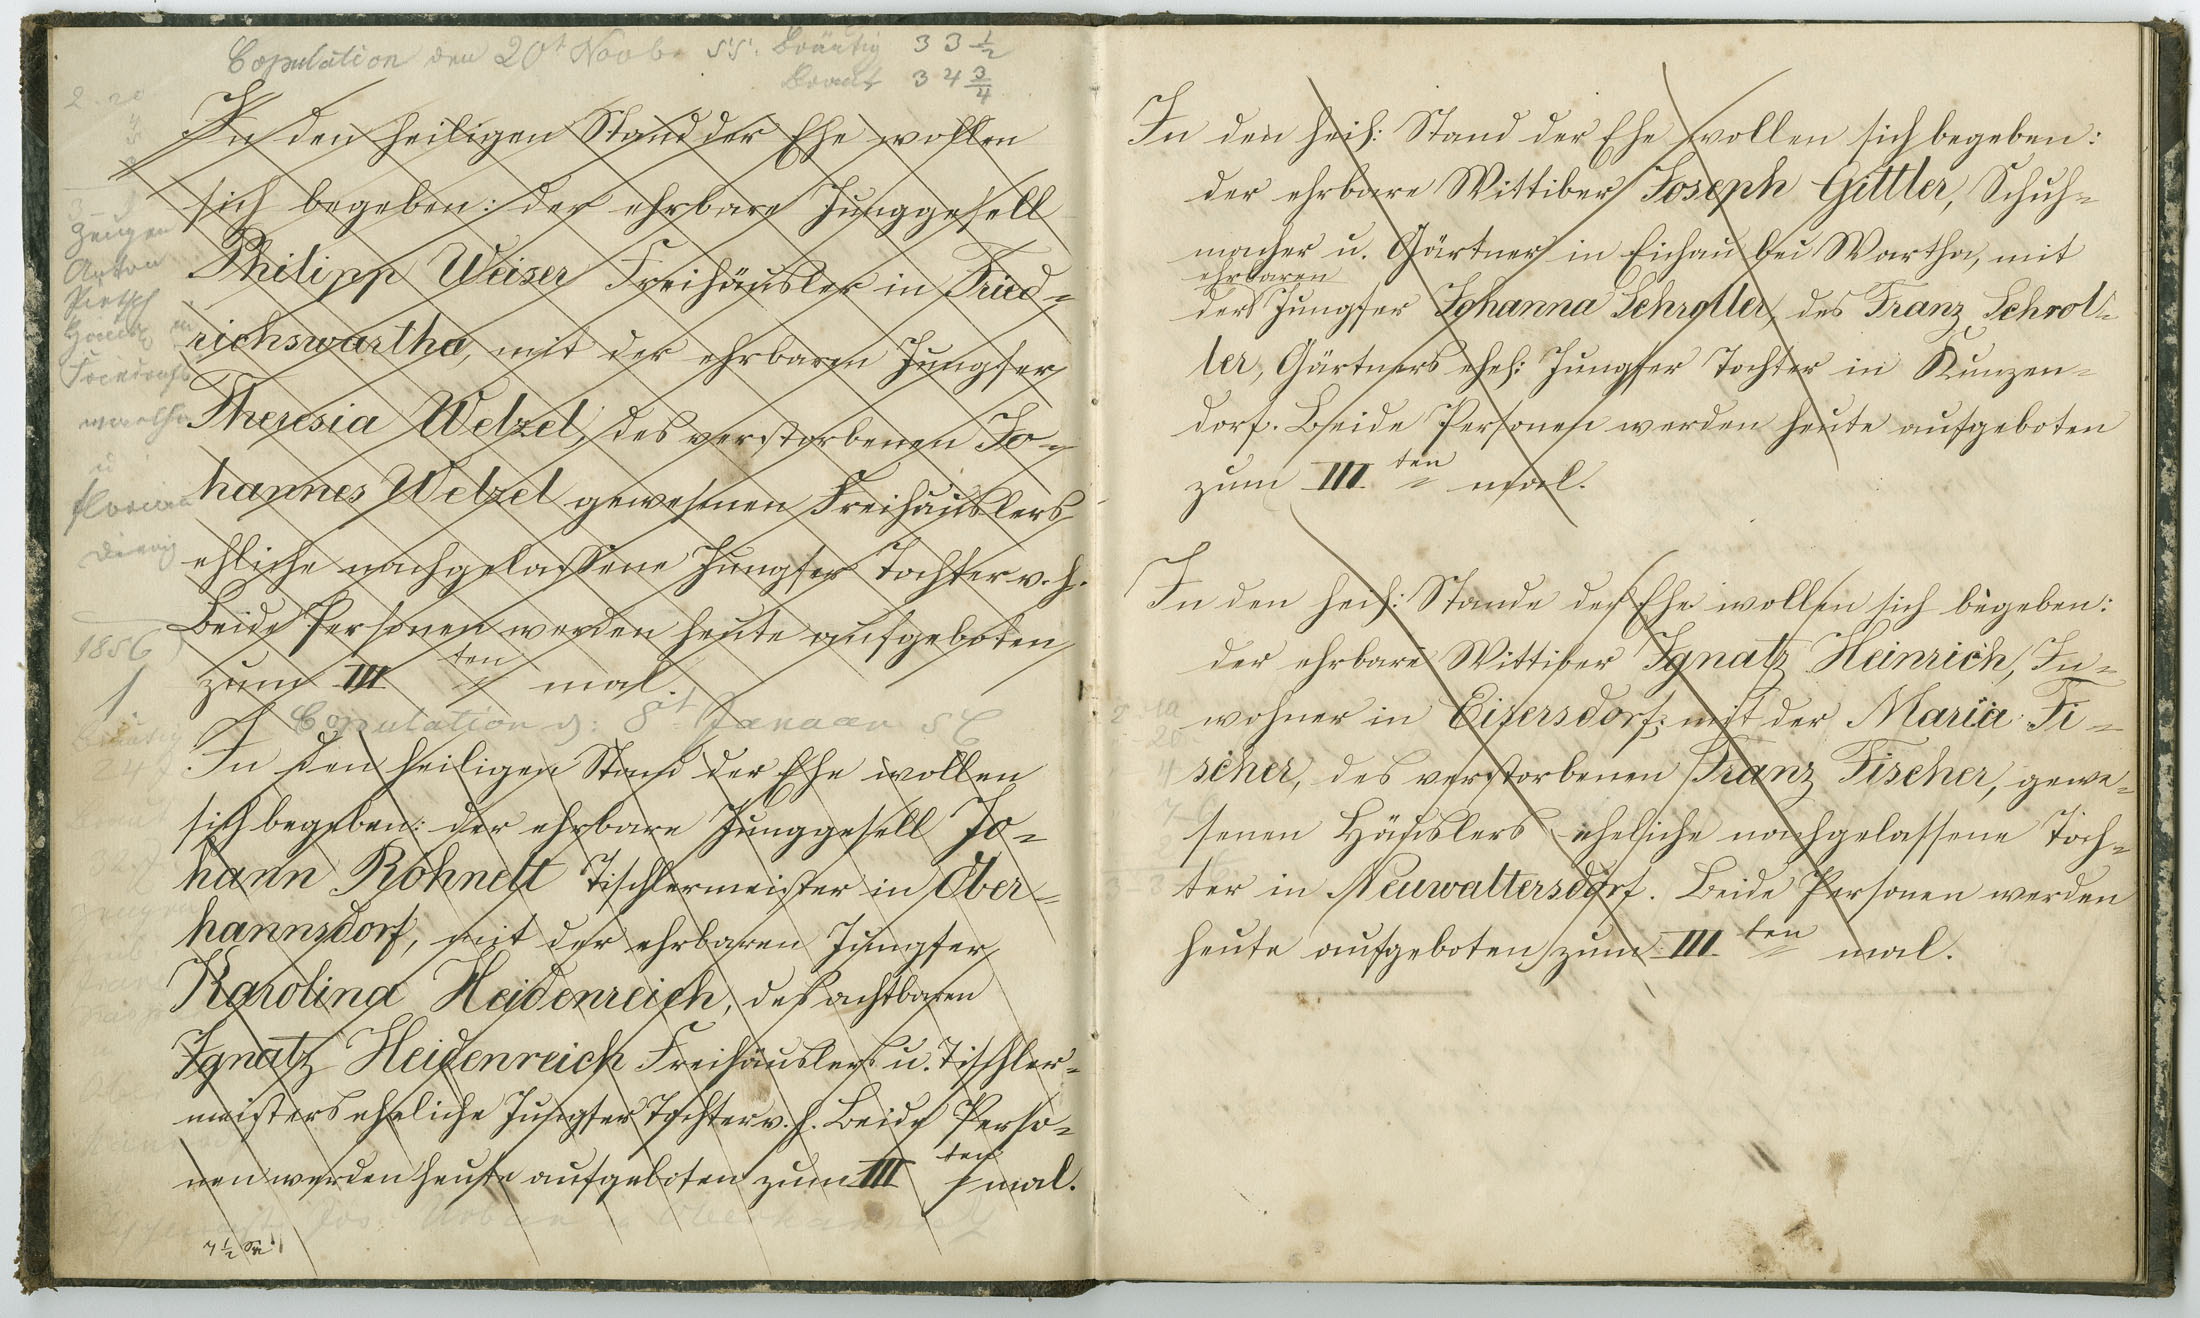 Copulation den 20t Novb. 55. Bräutig 33 1/2
Braut 34 3/4
In den heiligen Stand der Ehe wollen
sich begeben: der ehrbare Junggesell
Philipp Weiser Freihäusler in Fried-
richswartha, mit der ehrbaren Jungfer
Theresia Welzel, des verstorbenen Jo-
hannes Welzel gewesenen Freihäuslers
ehliche nachgelassene Jungfer Tochter v. h.
Beide Personen werden heute aufgeboten
zum III ten mal.
Zeugen
Anton
Pietsch
Friedrichs
wartha
Florian
1856
Copulation d: 8t Januar 56
In den heiligen Stand der Ehe wollen
sich begeben: der ehrbare Junggesell Jo-
hann Rohnelt Tischlermeister in Ober-
hannsdorf, mit der ehrbaren Jungfer
Karolina Heidenreich, des achtbaren
Ignatz Heidenreich Freihäuslers u. Tischler-
meisters eheliche Jungfer Tochter v. h. Beide Perso-
nen werden heute aufgeboten zum III ten mal.
7 1/2
In den heil: Stand der Ehe wollen sich begeben:
der ehrbare Wittiber Joseph Gittler, Schuh-
macher u. Gärtner in Eichau bei Wartha, mit
ehrbaren
der Jungfer Johanna Schrotler, des Franz Schrot-
ler, Gärtners ehel: Jungfer Tochter in Kunzen-
dorf. Beide Personen werden heute aufgeboten
zum III ten mal.
In den heil: Stande der Ehe wollen sich begeben:
der ehrbare Wittiber Ignatz Heinrich, In-
wohner in Eisersdorf; mit der Maria Fi-
scher, des verstorbenen Franz Fischer, gewe-
senen Häuslers eheliche nachgelassene Toch-
ter in Neuwaltersdorf. Beide Personen werden
heute aufgeboten zum III ten mal.